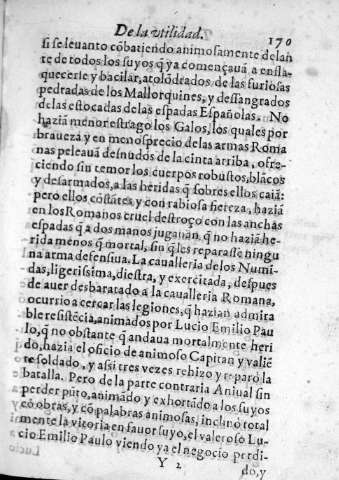 De la vtilidad. 170
si se leuanto cõbatiendo animosamente delan
te de todos los suyos q̃ ya començauã a enfla-
quecerse y bacilar, atolõdrados, de las furiosas
pedradas de los Mallorquines, y dessangrados
de las estocadas de las espadas Españolas. No
haziã menor estrago los Galos, los quales por
braueza y en menosprecio de las armas Roma
nas peleauã desnudos de la cinta arriba, ofre-
ciendo sin temor los cuerpos robustos, blãcos
y desarmados, a las heridas q̃ sobre ellos caiã:
pero ellos cõstãtes, y con rabiosa fiereza, haziã
en los Romanos cruel destroço con las anchas
espadas q̃ a dos manos jugauan, q̃ no haziã he-
rida menos q̃ mortal, sin q̃ les reparasse ningu
na arma defensiua. La caualleria de los Numi-
das, ligerissima, diestra, y exercitada, despues
de auer desbaratado a la caualleria Romana,
ocurrio a cercar las legiones, q̃ hazian admira
ble resistẽcia, animados por Lucio Emilio Pau
lo, q̃ no obstante q̃ andaua mortalmente heri
do, hazia el oficio de animoso Capitan y valiẽ
te soldado, y assi tres vezes rehizo y reparò la
batalla. Pero de la parte contraria Anibal sin
perder pũto, animado y exhortado a los suyos
cõ obras, y cõ palabras animosas, inclinò total
mente la vitoria en fauor suyo, el valeroso Lu-
cio Emilio Paulo viendo ya el negocio perdi-
Y 2 do, y